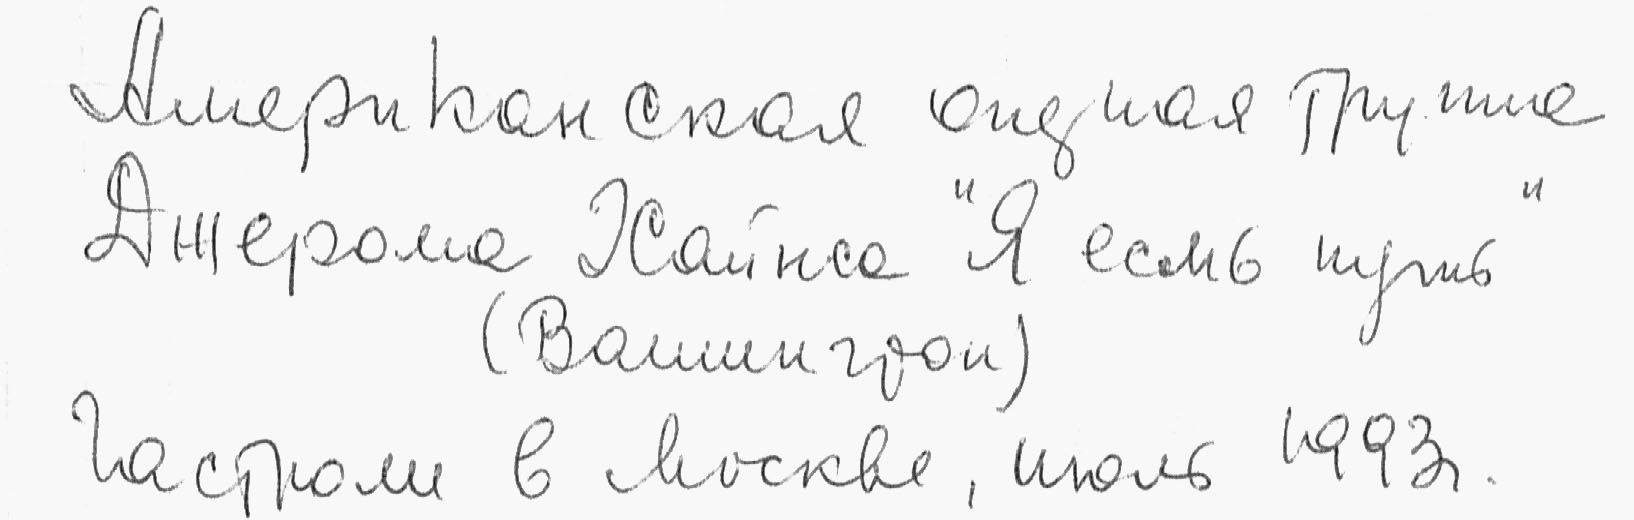 Американская оперная труппа
Джерома Хайнса "Я есмь путь"
(Вашингтон)
Гастроли в Москве, июль 1993г.